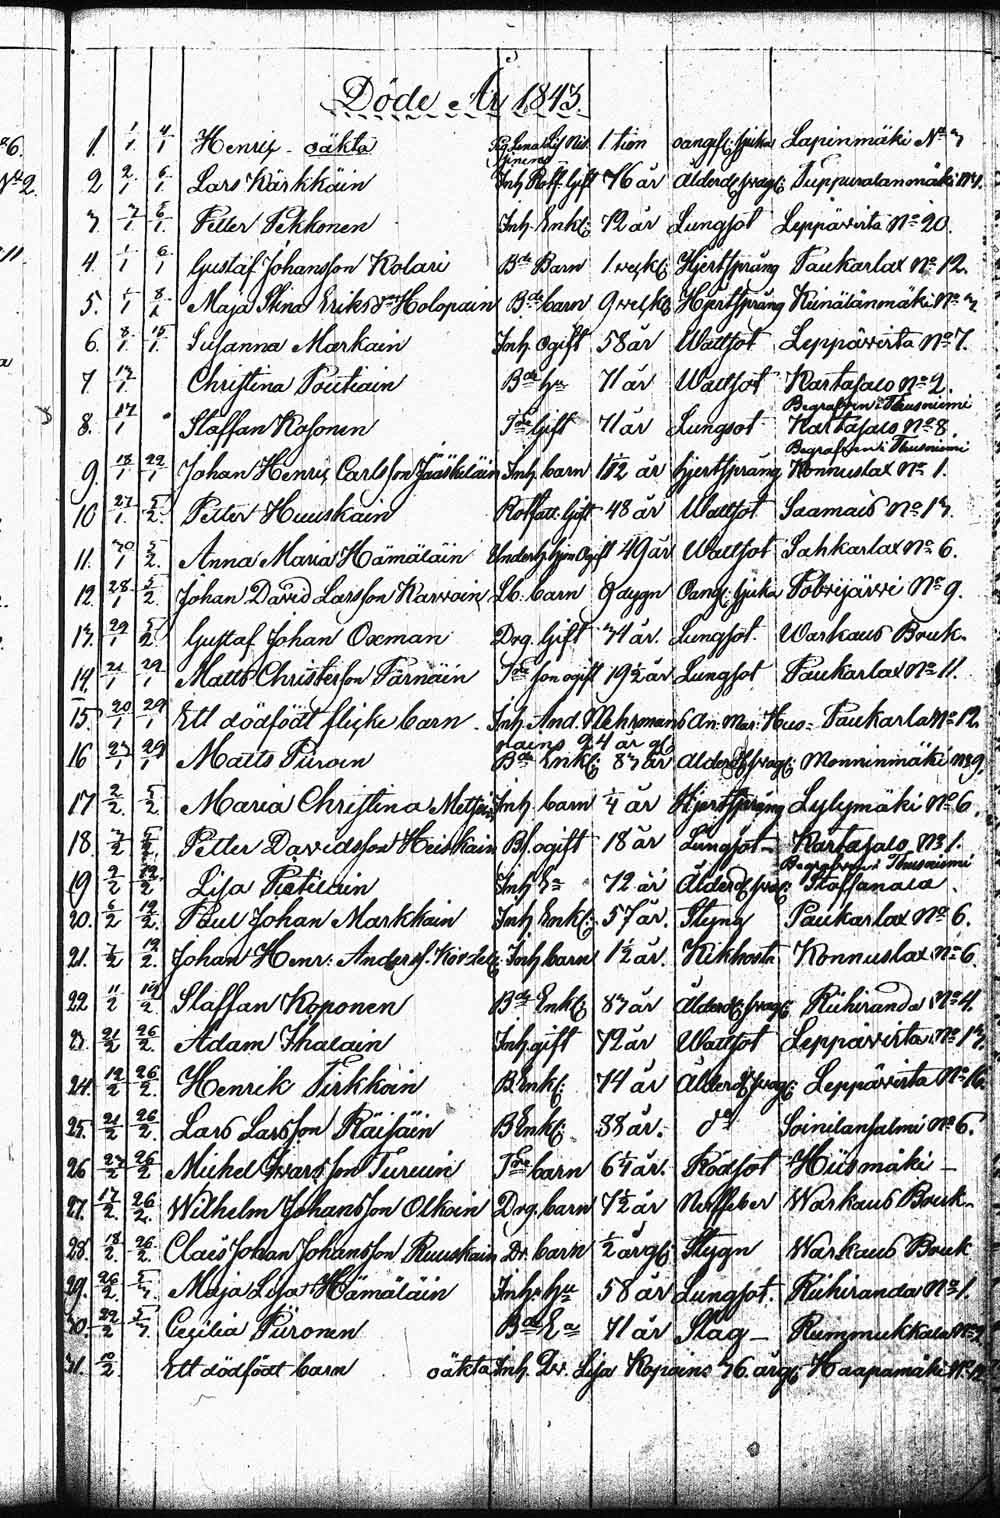 Döde År 1843.
1. 1/1 4/1 Henrix - oäkta 1 tim oangif. sjuka Lapinmäki No 3
2 2/1 6/1 Lars Kärkkäin Inh. Rotf. Gift 76 år Ålderd. svagh. Tuppuralanmäki No 4.
3. 3/1 6/1 Petter Pekkonen Inh. Enkl. 72 år Lungsot Leppävirta No 20.
4. 1/1 6/1 Gustaf Johansson Kolari Bde Barn 1. veck. Hjertsprång Paukarlax No 12.
5. 1/1 8/1 Maja Stina Eriksdr Holopain Bde barn 9 veck. Hjertsprång Kuinälänmäki No 3
6. 8/1 15/1 Susanna Markain Inh. Ogift 58 år Wattsot Leppävirta No 7.
7 13/1 Christina Poutiain Bde hu 71 år Wattsot Kartasalo No 2.
Begrafven i Thusniemi
8. 17/1 Staffan Kosonen Tde Gift 71 år Lungsot Kartasalo No 8
Begrafven i Thusniemi
9. 18/1 22/1 Johan Henrix Carlsson Jääskeläin Inh. barn 1 1/2 år hjertsprång Konnuslax No 1.
10 27/1 5/2. Petter Huuskain Rotfatt. Gift 48 år Wattsot Saamais No 13.
11. 30/1 5/2. Anna Maria Hämäläin Ogift 49 år Wattsot Sahkarlax No 6.
12. 28/1 5/2. Johan David Larsson Karvoin Lb. barn 8 dygn Oang. sjuka No 9.
13. 29/1 5/2 Gustaf Johan Oxman Drg. Gift 34 år. Lungsot. Warkaus Bruk.
14. 21/1 29/1 Matts Christersson Tärnäin Tde son ogift 19 1/2 år Lungsot Paukarlax No 11.
15 20/1 29/1 Ett dödfödt flicke barn. Inh. And. Nehrmans An: Mar: Hus- Paukarlax No 12.
kains 24 år gl.
16 23/1 29/1 Matts Piiroin Bde Enkl. 83 år Ålderd. svagh. Monninmäki No 9.
17 2/2. 5/2. Maria Christina Inh. barn 1/4 år Hjertsprång Lylymäki No 6.
18. 3/2 5/2 Petter Davidsson Heiskain Bf. ogift 18 år Lungsot - Kartasalo No 1.
Begrafven i Thusniemi
19 2/2 12/2 Lisa Pietilain Inh Ea 72 år Ålderd. svag. Staffanala.
20. 6/2 12/2. Paul Johan Markkain Inh. Enkl. 57 år. Styng Paukarlax No 6.
21. 7/2 12/2. Johan Henr: Anderss. Inh. barn 1 1/2 år. Kikhosta Konnuslax No 6.
22 11/2 19/2 Staffan Koponen Bde Enkl. 83 år Ålderd. svag. Riihiranda No 4.
23. 21/2 26/2. Adam Ihalain Inh. gift 72 år Wattsot Leppävirta No 13.
24. 19/2 26/2. Henrik Tirkkoin B. Enkl. 74 år Ålderd. svag. Leppävirta No 16.
25. 21/2 26/2. Lars Larsson Räisäin B Enkl. 88 år. do Soinilansalmi No 6.
26 23/2 26/2 Michel Ivarsson Turuin Tre barn 6 1/4 år. Rödsot Hiismäki -
27. 17/2. 26/2. Wilhelm Johansson Olkoin Drg. barn 7 1/2 år Nerffeber Warkaus Bruk.
28. 18/2. 26/2. Claes Johan Johansson Ruuskain Dr. barn 1/2 årgl. Stygn Warkaus Bruk
29. 26/2. 5/3. Maja Lisa Hämäläin Inh. hu 58 år Lungsot. Riihiranda No 1.
30. 22/2 5/3 Cecilia Piironen Bde Ea 71 år Slag - Rummukkala No 2
31. 10/2. Ett dödfödt barn oäkta Inh. Dr. Lisa Kopains 36. årgl. Haapamäki No 12